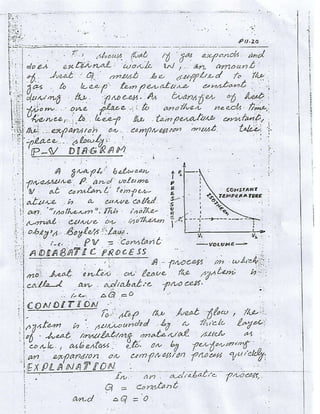 P11.20
shows that if gas expands and
does external work W, an amount
of heat Q must be supplied to the
gas to keep temperature constant
during the process. As transfer of heat
from one place to another needs time,
hence, to keep the temperature constant,
the expansion or compression must take
place slowly.
P-V DIAGRAM
A graph between
pressure P and volume
V at constant temper-
ature is a curve called
an "isotherm". This isothe-
rmal curve or isotherm
obey's Boyle's law.
i.e PV = constant
PRESSURE
CONSTANT
TEMPERATURE
ISOTHERM
VOLUME
ADIABATIC PROCESS
A process in which
no heat enter or leave the system is
called an adiabatic process.
i.e ΔQ = 0
CONDITION
To stop the heat flow, the
system is surrounded by a thick layer
of heat insulating material such as
cork, asbestos etc or by performing
an expansion or compression process quickly.
EXPLANATION
In an adiabatic process
Q = constant
and ΔQ = 0